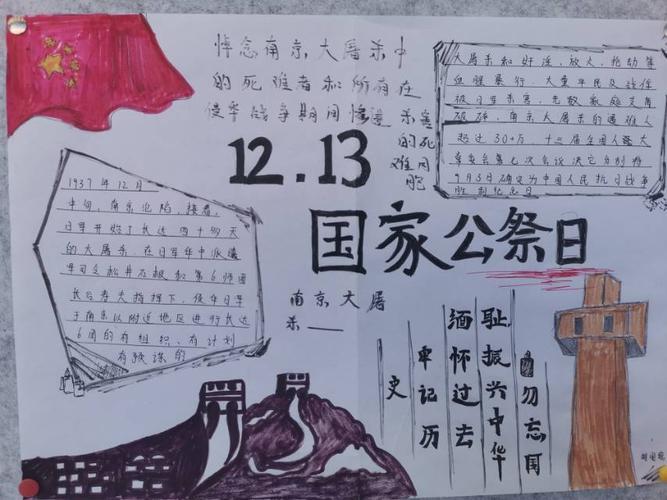 悼念南京大屠杀中
的死难者和所有在
侵华战争期间惨遭
杀害
的死
难同
胞
12.13
国家公祭日
大屠杀和奸淫、放火、抢劫等
血腥暴行,大量平民及战俘
被日军杀害,无数家庭支离
破碎,南京大屠杀的遇难人
超过30+万 十二届全国人大
常委会第七次会议决定分别将
9月3日确定为中国人民抗日战争
胜利纪念日
1937年12月
中旬,南京沦陷,接着,
日军开始了长达四十多天
的大屠杀,在日军华中派遣
军司令松井石根和第6师团
长谷寿夫指挥下,侵华日军
于南京以附近地区进行长达
6周的有组织、有计划
有预谋的
南京大屠
杀——
勿忘国
耻振兴中华
缅怀过去
牢记历
史